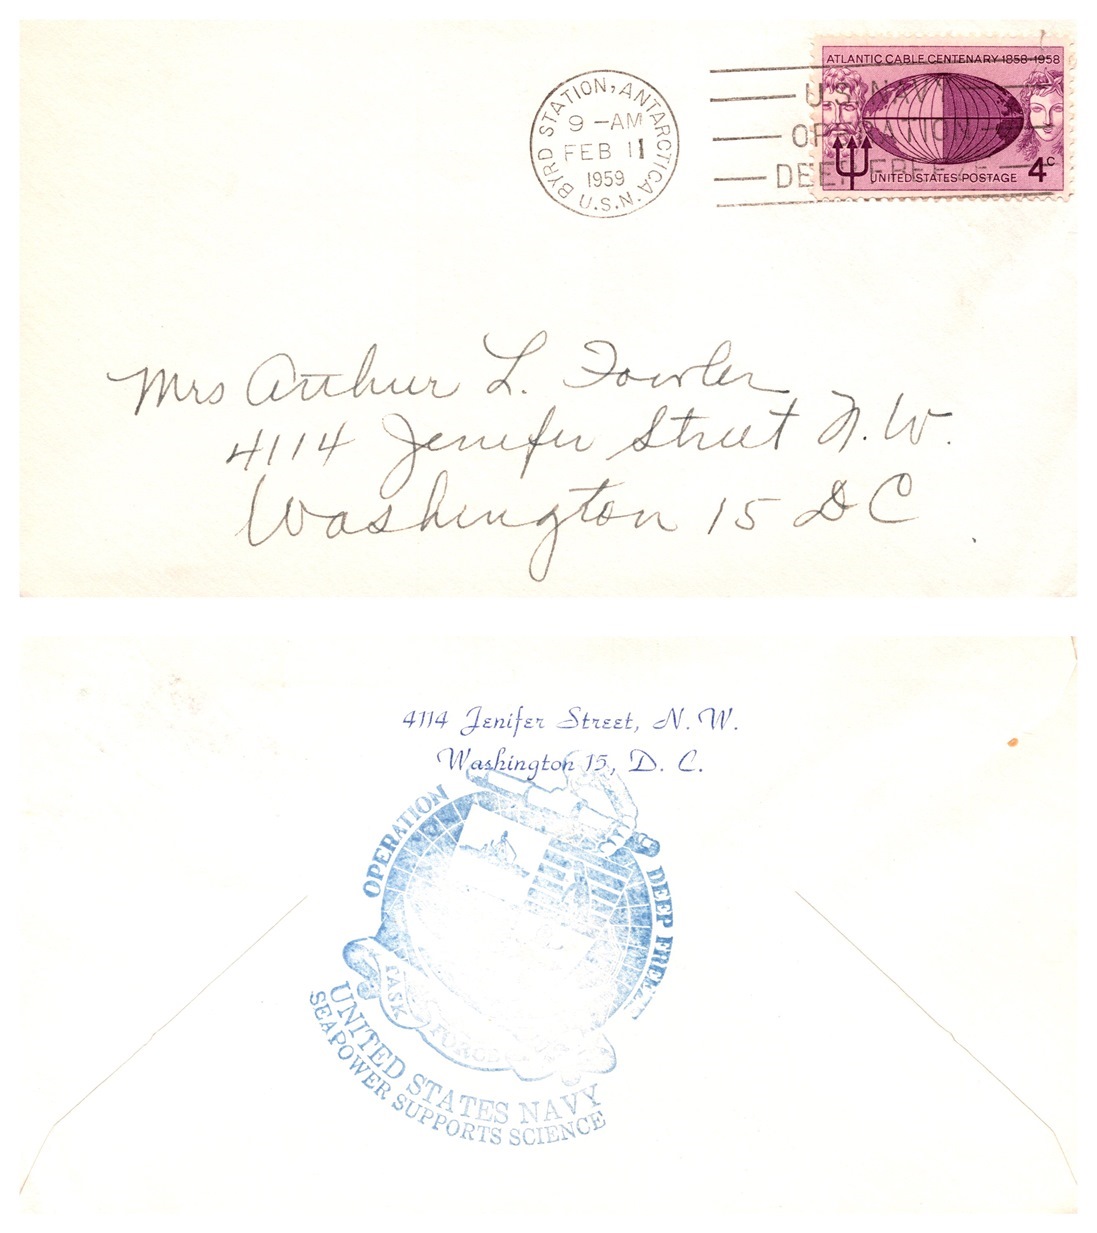 BYRD STATION, ANTARCTICA
9 -AM
FEB 11
1959
U.S.N.
U.S. NAVY
OPERATION
DEEP FREEZE
ATLANTIC CABLE CENTENARY 1858-1958
4c
UNITED STATES POSTAGE
Mrs Arthur L. Fowler
4114 Jenifer Street N.W.
Washington 15 D C
4114 Jenifer Street, N. W.
Washington 15, D. C.
OPERATION
DEEP FREEZE
TASK FORCE
UNITED STATES NAVY
SEAPOWER SUPPORTS SCIENCE